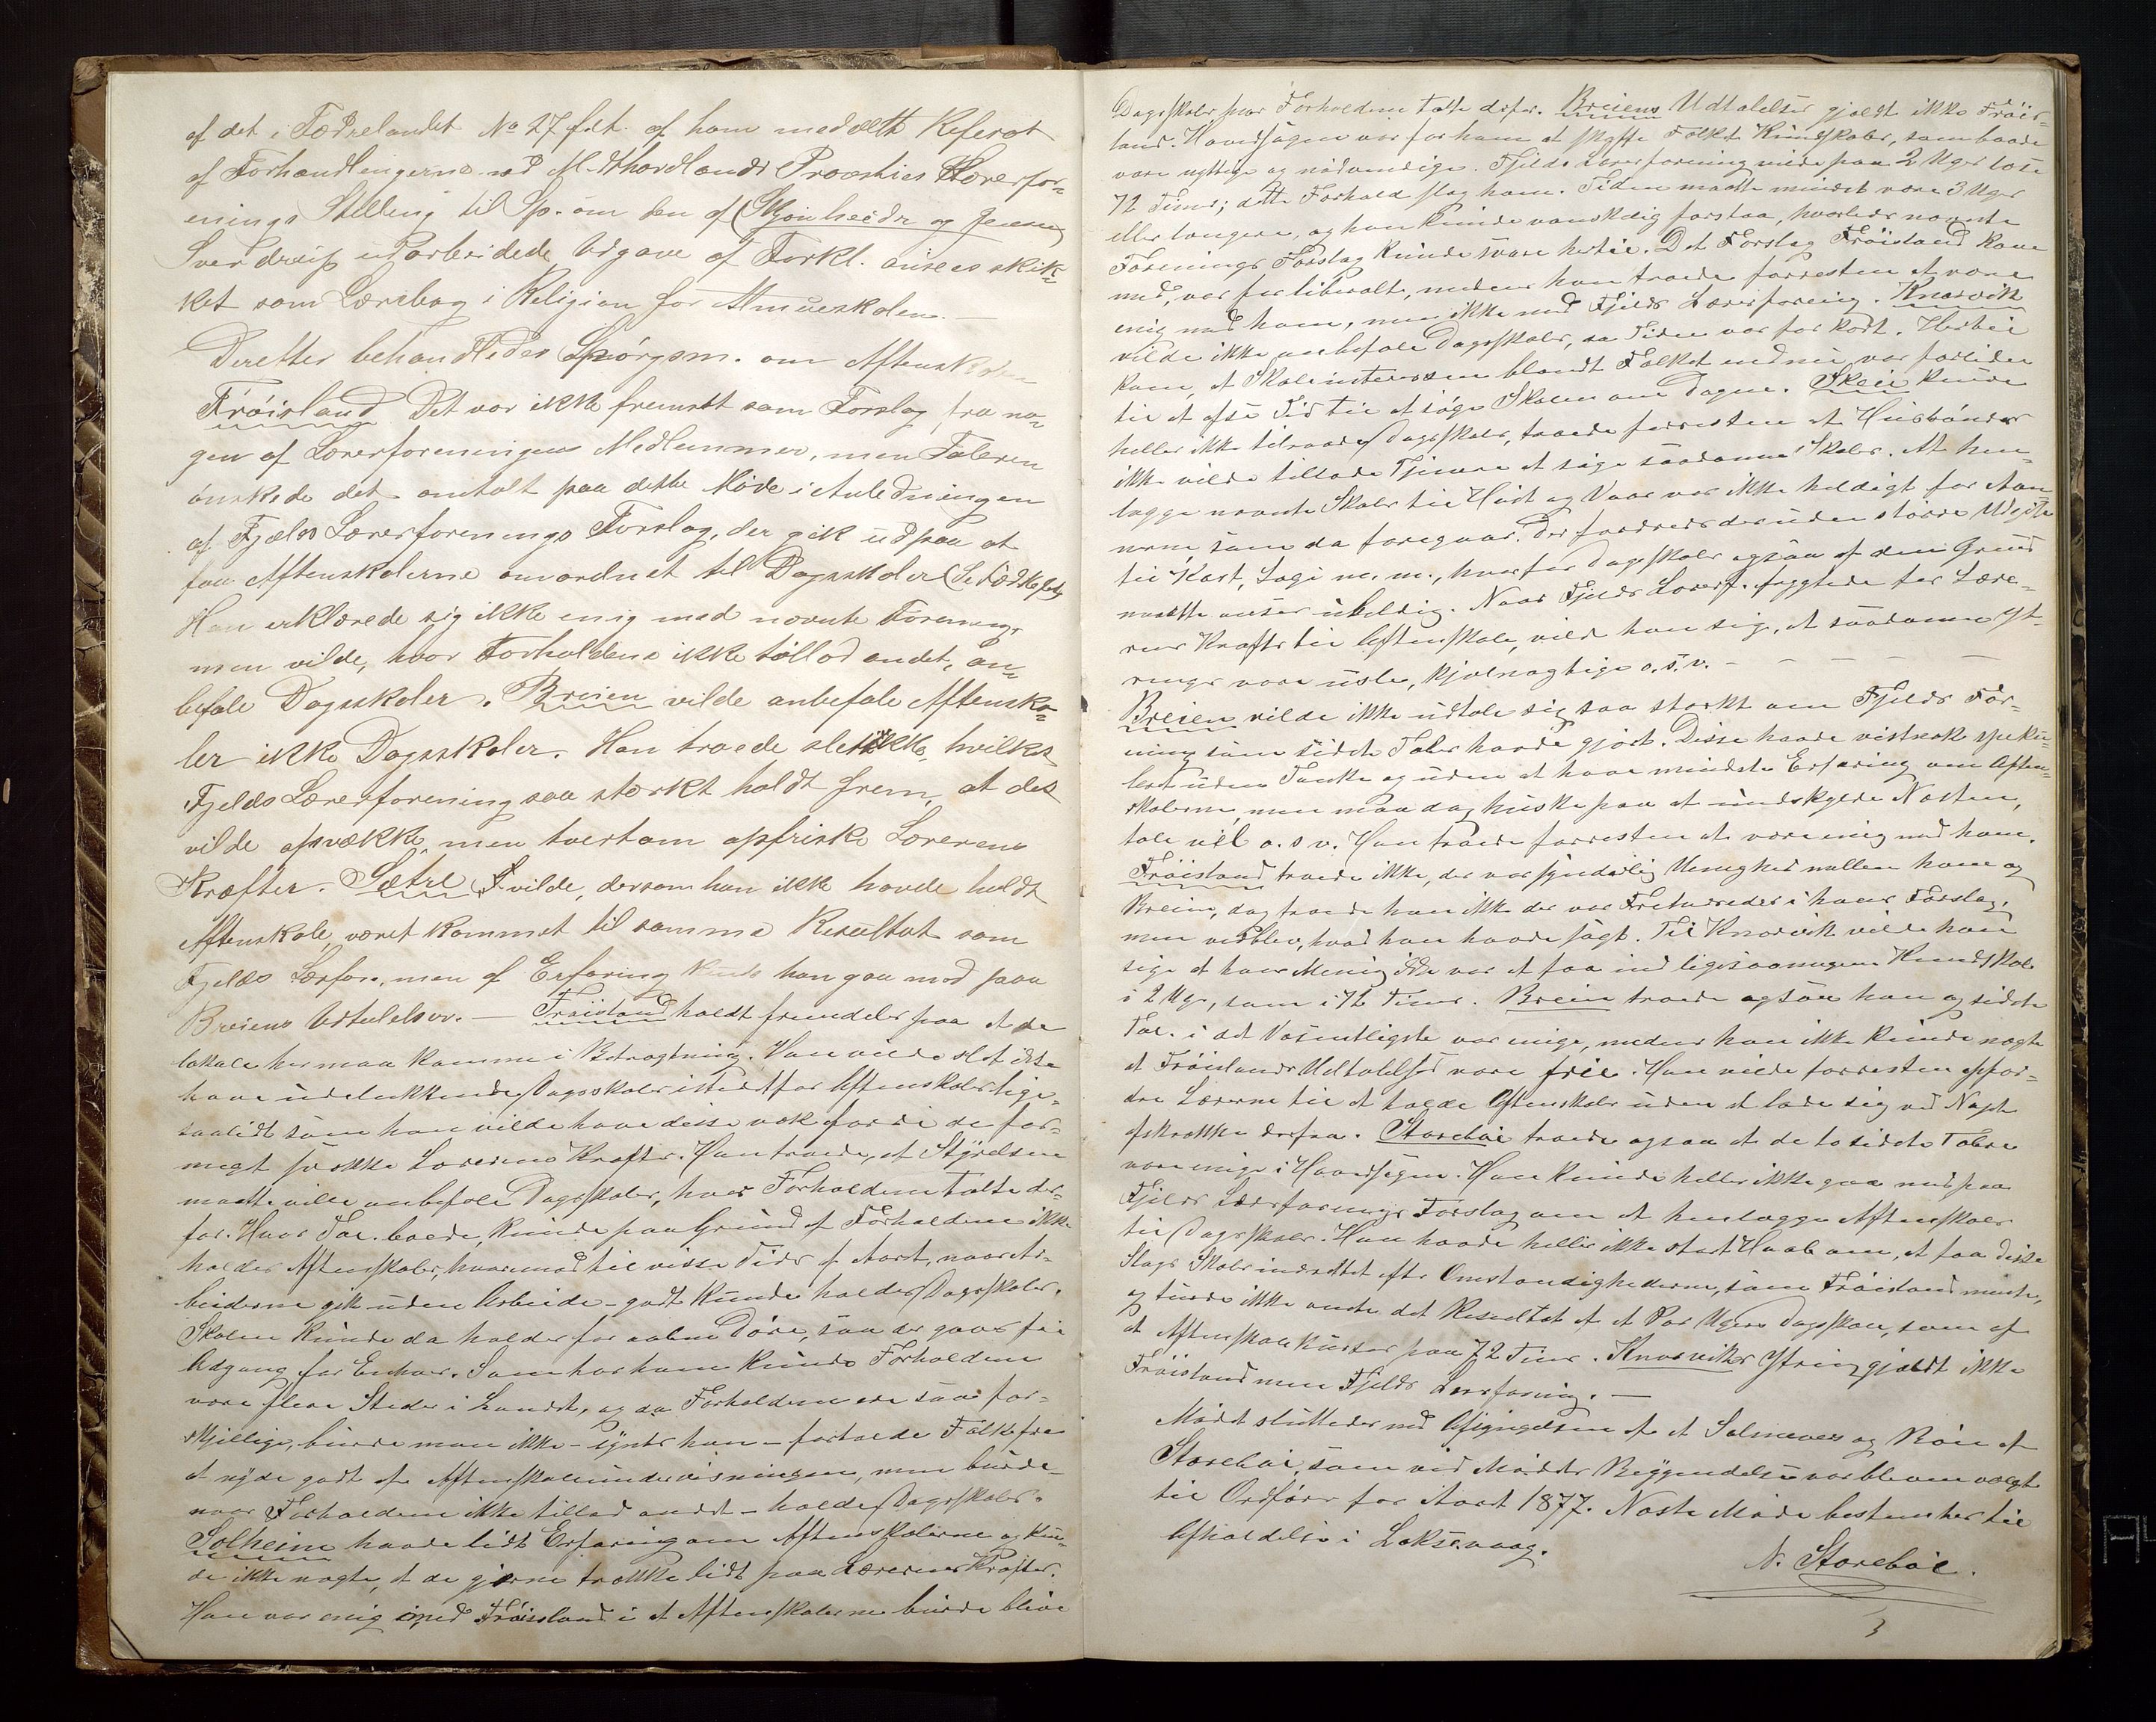 af det i Fædrelandet No 27 f.A. af ham meddelte Referat
af Forhandlingerne ved M.dthordlands Provsties Lærerfor-
enings Stilling til Sp. om den af (Skjønheidr og Jensen)
Sverdrup udarbeidede Udgave af Forkl. ansees skik-
ket som Lærebog i Religion for Almueskolen. —
Deretter behandledes Spørgsm. om Aftenskolen
Frøisland Det var ikke fremsat som Forslag fra no-
gen af Lærerforeningens Medlemmer, men Taleren
ønskede det omtalt paa dette Møde i Anledningen
af Fjelds Lærerforenings Forslag, der gik ud paa at
faa Aftenskolerne omordnet til Dagsskoler
Han erklærede sig ikke enig med nævnte Forening
men vilde, hvor Forholdene ikke tillod andet, an-
befale Dagsskoler. Breien vilde anbefale Aftensko-
ler ikke Dagsskoler. Han troede slet ikke, hvilket
Fjelds Lærerforening saa stærkt holdt frem, at det
vilde afsvække, men tvertom opfriske Lærerens
Kræfter. Sætre S. vilde, dersom han ikke havde holdt
Aftenskole, været kommet til samme Resultat som
Fjelds Lærfor., men af Erfaring kunde han gaa med paa
Breiens Udtalelser. — Frøisland holdt fremdeles paa at de
lokale her maa komme i Betragtning. Han vilde slet ikke
have udelukkende Dagsskoler istedetfor Aftenskoler lige-
saalidt som han vilde have disse væk fordi de for-
meget svække Lærerens Kræfter. Han troede, at Styrelsen
maatte ville anbefale Dagsskoler, hvor Forholdene talte der-
for. Hvor Tal. boede, kunde paa Grund af Forholdene ikke
holdes Aftenskoler, hvorimod til visse Tider af Aaret, naar Ar-
beiderne gik uden Arbeide – godt kunde holdes Dagsskoler.
Skolen kunde da holdes for aabne Døre, saa der gaves fri
Adgang for Enhver. Som hos ham kunde Forholdene
være flere Steder i Landet, og da Forholdene ere saa for-
skjellige, burde man ikke – syntes han – forholde Folk fra
at nyde godt af Aftenskoleundervisningen, men burde –
naar Forholdene ikke tillod andet – holde Dagsskoler.
Solheim havde lidt Erfaring om Aftenskolerne og kun-
de ikke nægte, at de gjerne trække lidt paa Lærernes Kræfter.
Han var enig med Frøisland i at Aftenskolerne burde blive
Dagsskoler hvor Forholdene talte derfor. Breiens Udtalelser gjaldt ikke Frøis-
land. Hovedsagen var for ham at skaffe Folket Kundskaber, som baade
vare nyttige og nødvendige. Fjelds Lærerforening vilde paa 2 Uger læse
72 Timer; dette Forhold slog ham. Tiden maatte mindst være 3 Uger
eller længere, og han kunde vanskelig forstaa, hvorledes nævnte
Forenings Forslag kunde svare hertil. Det Forslag Frøisland kom
med, var for liberalt, medens han troede forresten at være
enig med ham, men ikke med Fjelds Lærerforening. Knarvik
vilde ikke anbefale Dagsskoler, da Tiden var for kort. Hertil
kom, at Skoleinteressen blandt Folket endnu var forliden
til at ofre Tid til at søge Skolen om Dagen. Skeie kunde
heller ikke tilraade Dagsskoler, troede forresten at Husbønder
ikke vilde tillade Tjenere at søge saadanne Skoler. At hen-
lægge nævnte Skoler til Høst og Vaar var ikke heldigt for Aan-
nerne, som da foregaar. Der fordredes desuden større Udgifter
til Kost, Logi m. m., hvorfor Dagsskoler ogsaa af den Grund
maatte ansees uheldig. Naar Fjelds Lærerf. frygtede for Lære-
rens Kræfter til Aftenskole, vilde han sige, at saadanne Yt-
ringer vare usle, kjælnagtige o. s. v. – – – – –
Breien vilde ikke udtale sig saa stærkt om Fjelds For-
ening som sidste Taler havde gjort. Disse havde vistnok speku-
leret uden Tanke og uden at have mindste Erfaring om Aften-
skolerne, men maa dog huske paa at undskylde Næsten,
tale vel o. s v. Han troede forresten at være enig med ham.
Frøisland troede ikke, der var synderlig Uenighed mellem ham og
Breien, dog troede han ikke der var Frihedstreder i hans Forslag,
men vedblev, hvad han havde sagt. Til Knarvik vilde han
sige at hans Mening ikke var at faa ind ligesaamegen Kundskab
i 2 Uger, som i 72 Timer. Breien troede ogsaa han og sidste
Tal. i det Væsentligste var enige, medens han ikke kunde nægte
at Frøislands Udtalelser vare frie. Han vilde forresten opfor-
dre Lærerne til at holde Aftenskoler uden at lade sig ved Noget
afskrække derfra. Storebøe troede ogsaa at de to sidste Talere
vare enige i Hovedsagen. Han kunde heller ikke gaa med paa
Fjelds Lærerforenings Forslag om at henlægge Aftenskoler
til Dagsskoler. Han havde heller ikke stort Haab om, at faa disse
Slags Skoler indrettet efter Omstændighederne, som Frøisland mente,
og turde ikke vente det Resultat af et Par Ugers Dagsskole, som af
et Aftenskolekursus paa 72 Timer. Knarviks Ytring gjaldt ikke
Frøisland men Fjelds Lærerforening. —
Mødet sluttedes med Afsyngelsen af et Salmevers og Bøn af
Storebøe, som ved Mødets Begyndelse var bleven valgt
til Ordfører for Aaret 1877. Næste Møde bestemtes til
Afholdelse i Laksevaag.
N. Storebøe.
3